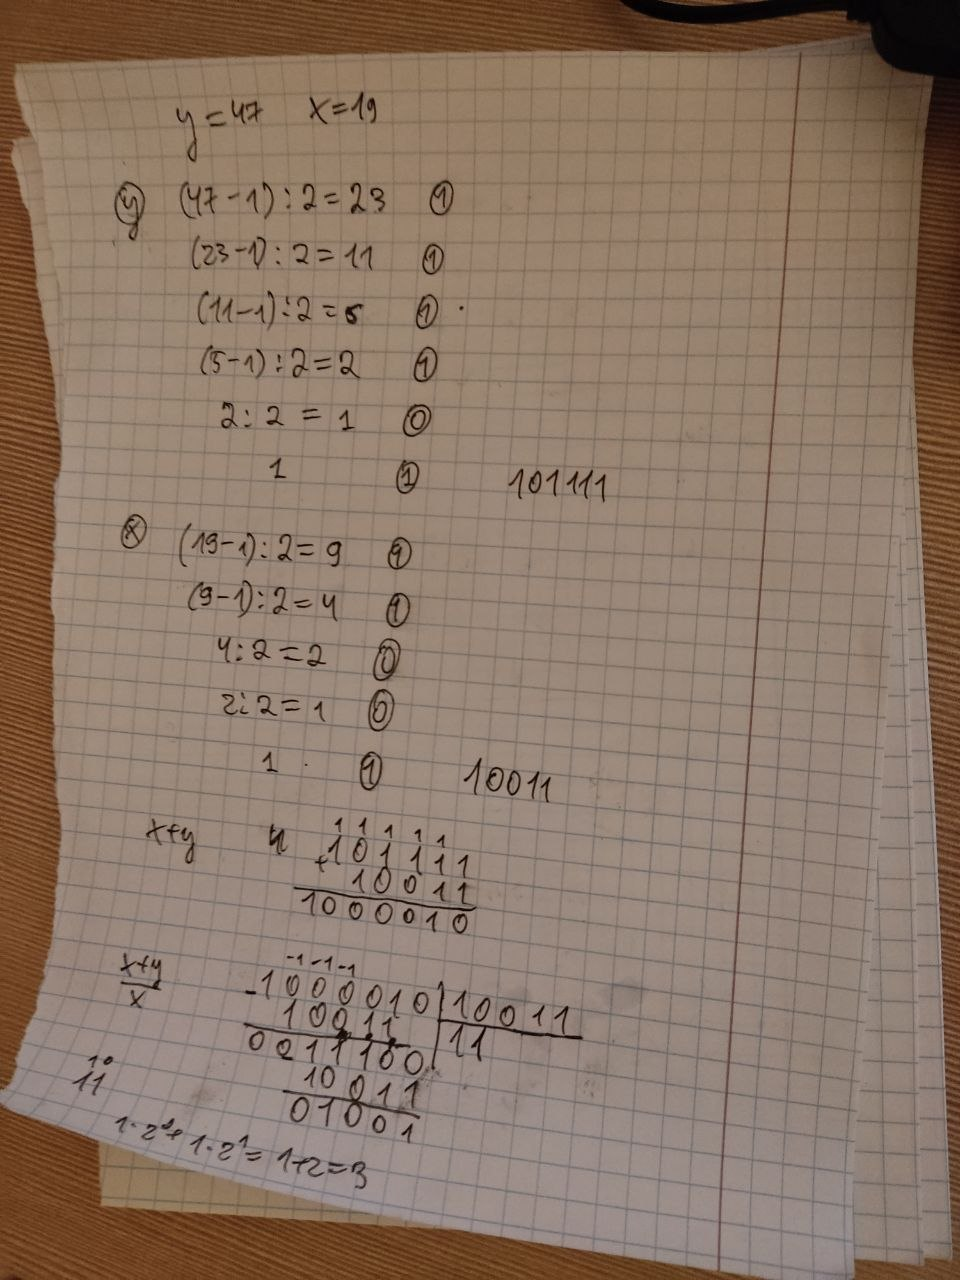 y=47 x=19
y (47-1):2=23 1
(23-1):2=11 1
(11-1):2=5 1
(5-1):2=2 1
2:2=1 0
1 1 101111
x (19-1):2=9 1
(9-1):2=4 1
4:2=2 0
2:2=1 0
1 1 10011
x+y
1 1 1 1 1
+101111
10011
1000010
x+y
x
-1 -1 -1
-1000010 10011
10011 11
0011100
10011
01001
10
11
1·2⁰+1·2¹=1+2=3